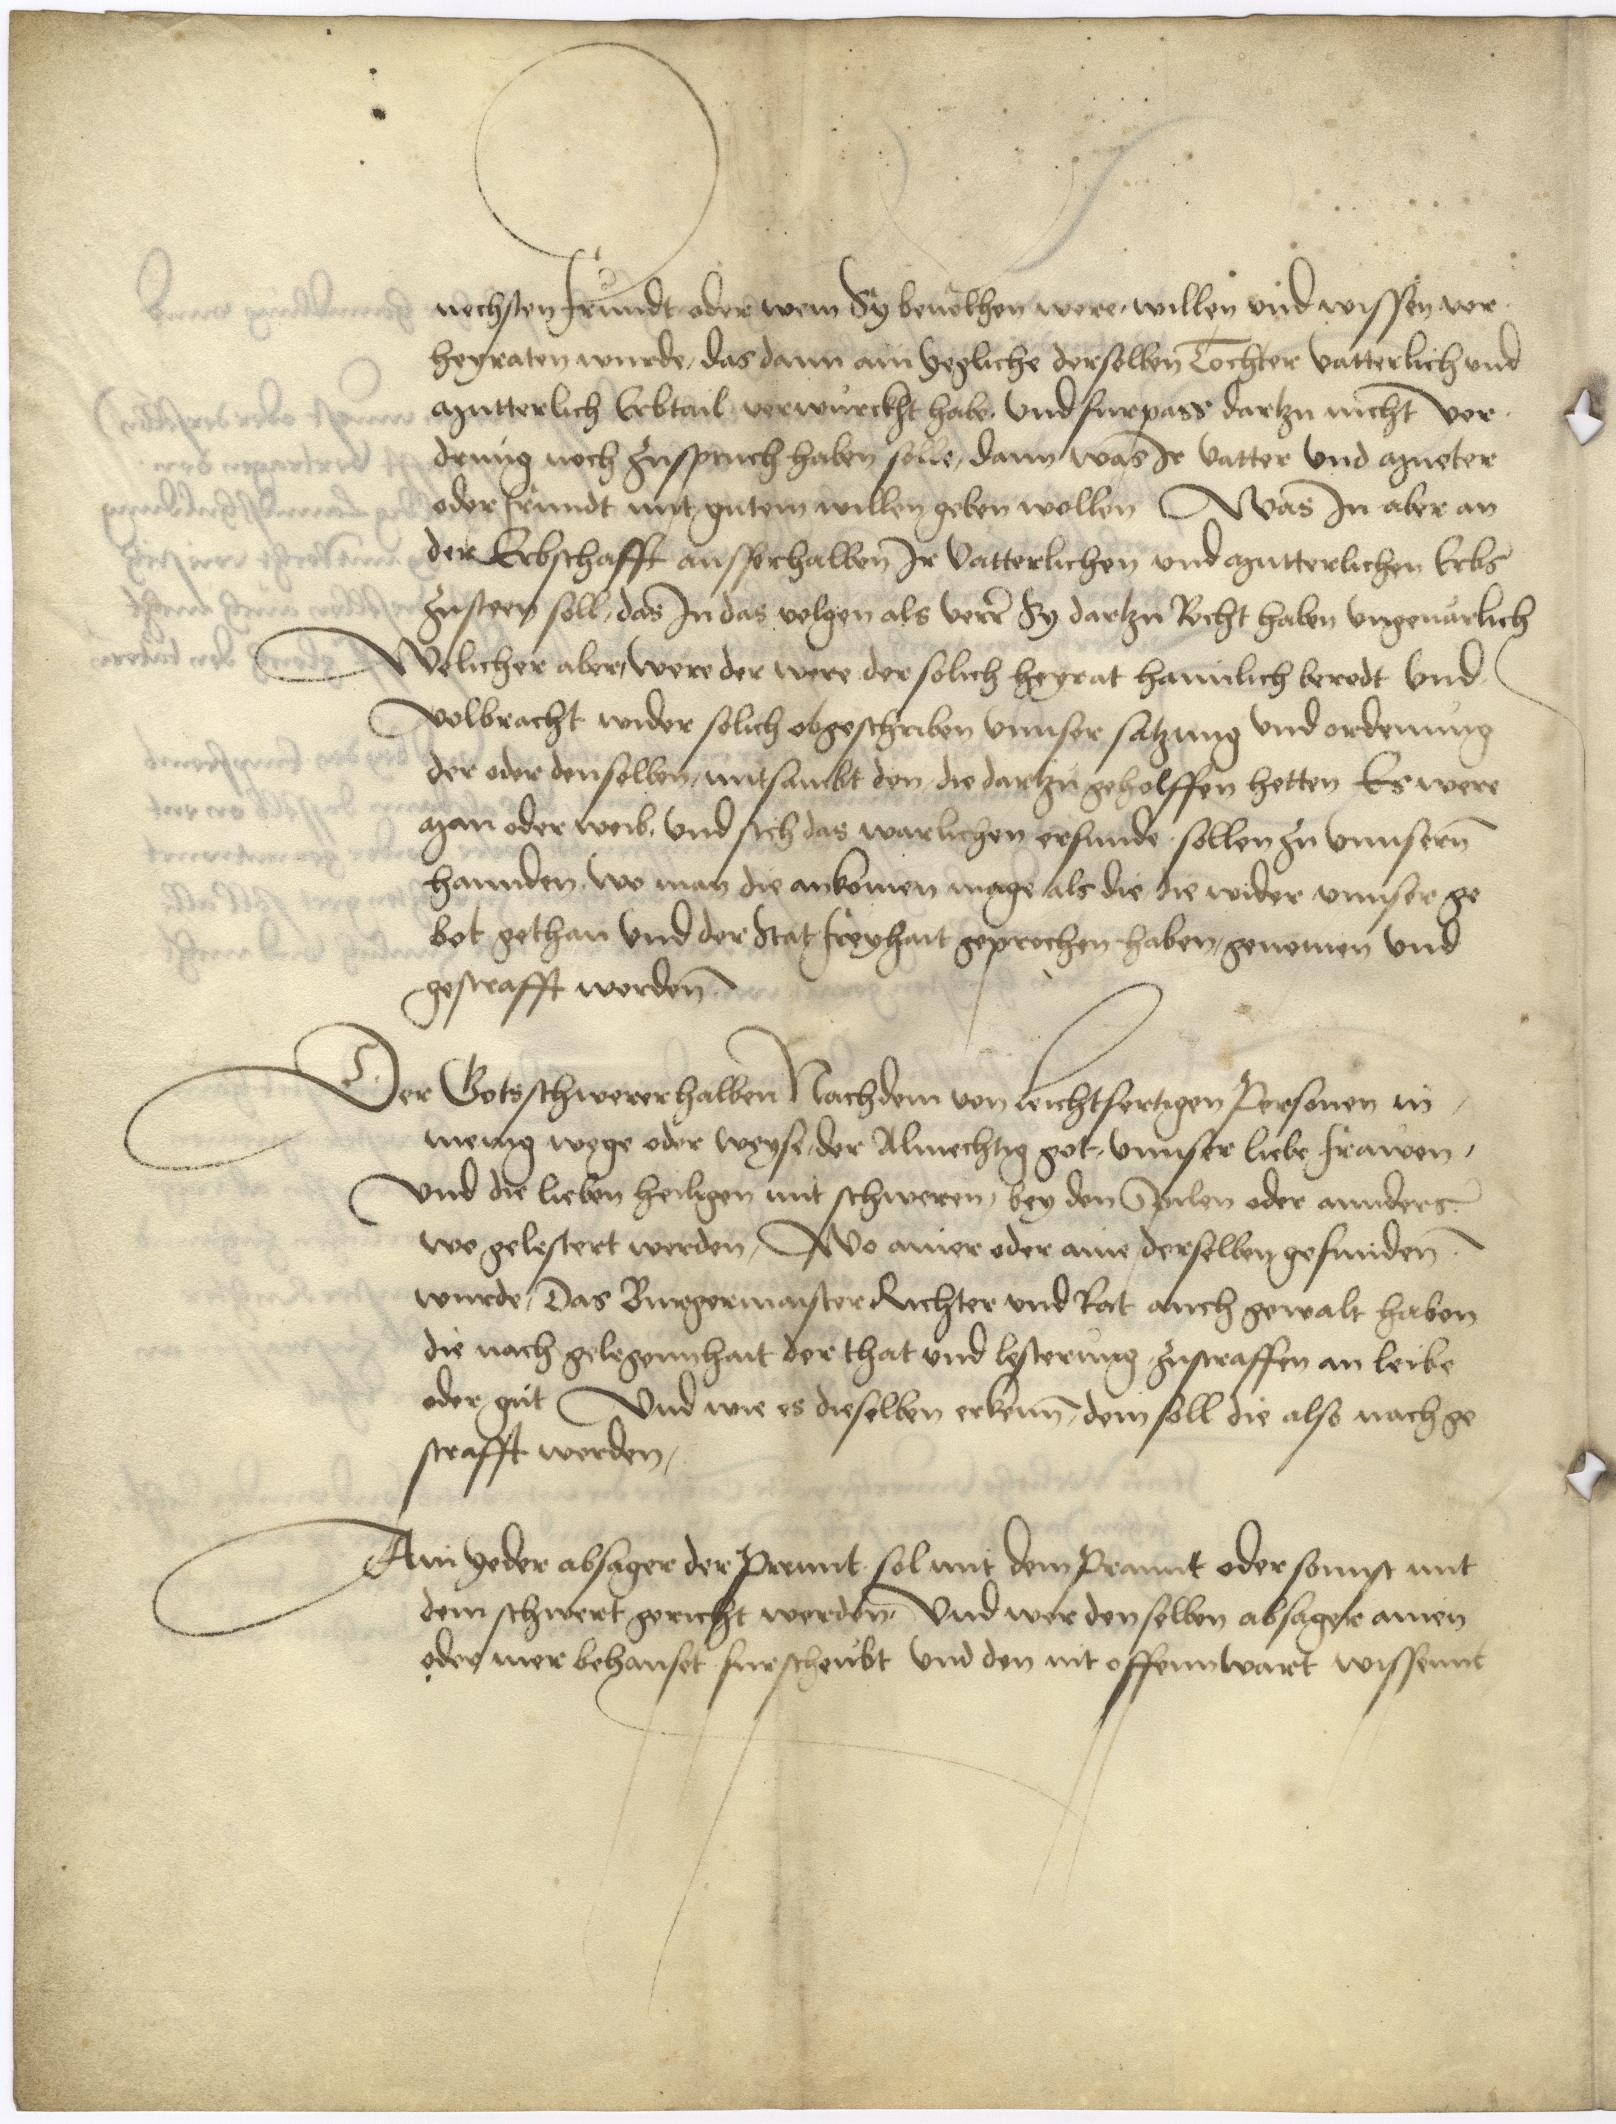 nechsten frundt oder wem Sy beuolhen were, willen vnd wissen ver
heyraten wurde, das dann ain yegliche derselben Tochter vatterlich vnd
mutterlich Erbtail verwurckht habe, vnd furpass dartzu nicht vor
drung noch Zuspruch haben solle, dann was Ir vatter vnd mueter
oder frundt mit gutem willen geben wollen Was In aber an
der Erbschafft ausserhalben Ir Vatterlichen vnd mutterlichen Erbs
Zusteen soll, das In das volgen als verr Sy dartzu Recht haben vngeuarlich
Welicher aber, were der were der solich heyrat hamilich beredt vnd
volbracht wider solich obgeschriben vnnser satzung vnd ordenung
der oder denselben, mitsambt den die dartzu geholffen hetten Es were
man oder weib, vnd sich das warlichen erfunde, sollen Zu vnnsern
hannden, wo man die ankomen mage als die die wider vnnser ge
bot gethan vnd der Stat freyhait geprochen haben, genomen vnd
gestrafft werden
Der Gotsschwerer halben Nachdem von leichtfertigen Personen in
menig wege oder weyse, der Almechtig got, vnnser liebe frawen,
vnd die lieben heiligen mit schweren, bey den Spilen oder annders
wo gelestert werden, Wo ainer oder aine derselben gefunden
wurde, Das Burgermaister Richter vnd Rat auch gewalt haben
die nach gelegennhait der that vnd lesterung Zustraffen an leibe
oder gut Vnd wie es dieselben erkenn, dem soll die also nach ge
strafft werden,
Ain yeder absager der Prennt sol mit dem Prannt oder sonnst mit
dem schwert gericht werden, Vnd wer denselben absager ainen
oder mer behauset furscheubt vnd den nit offennwart wissennt